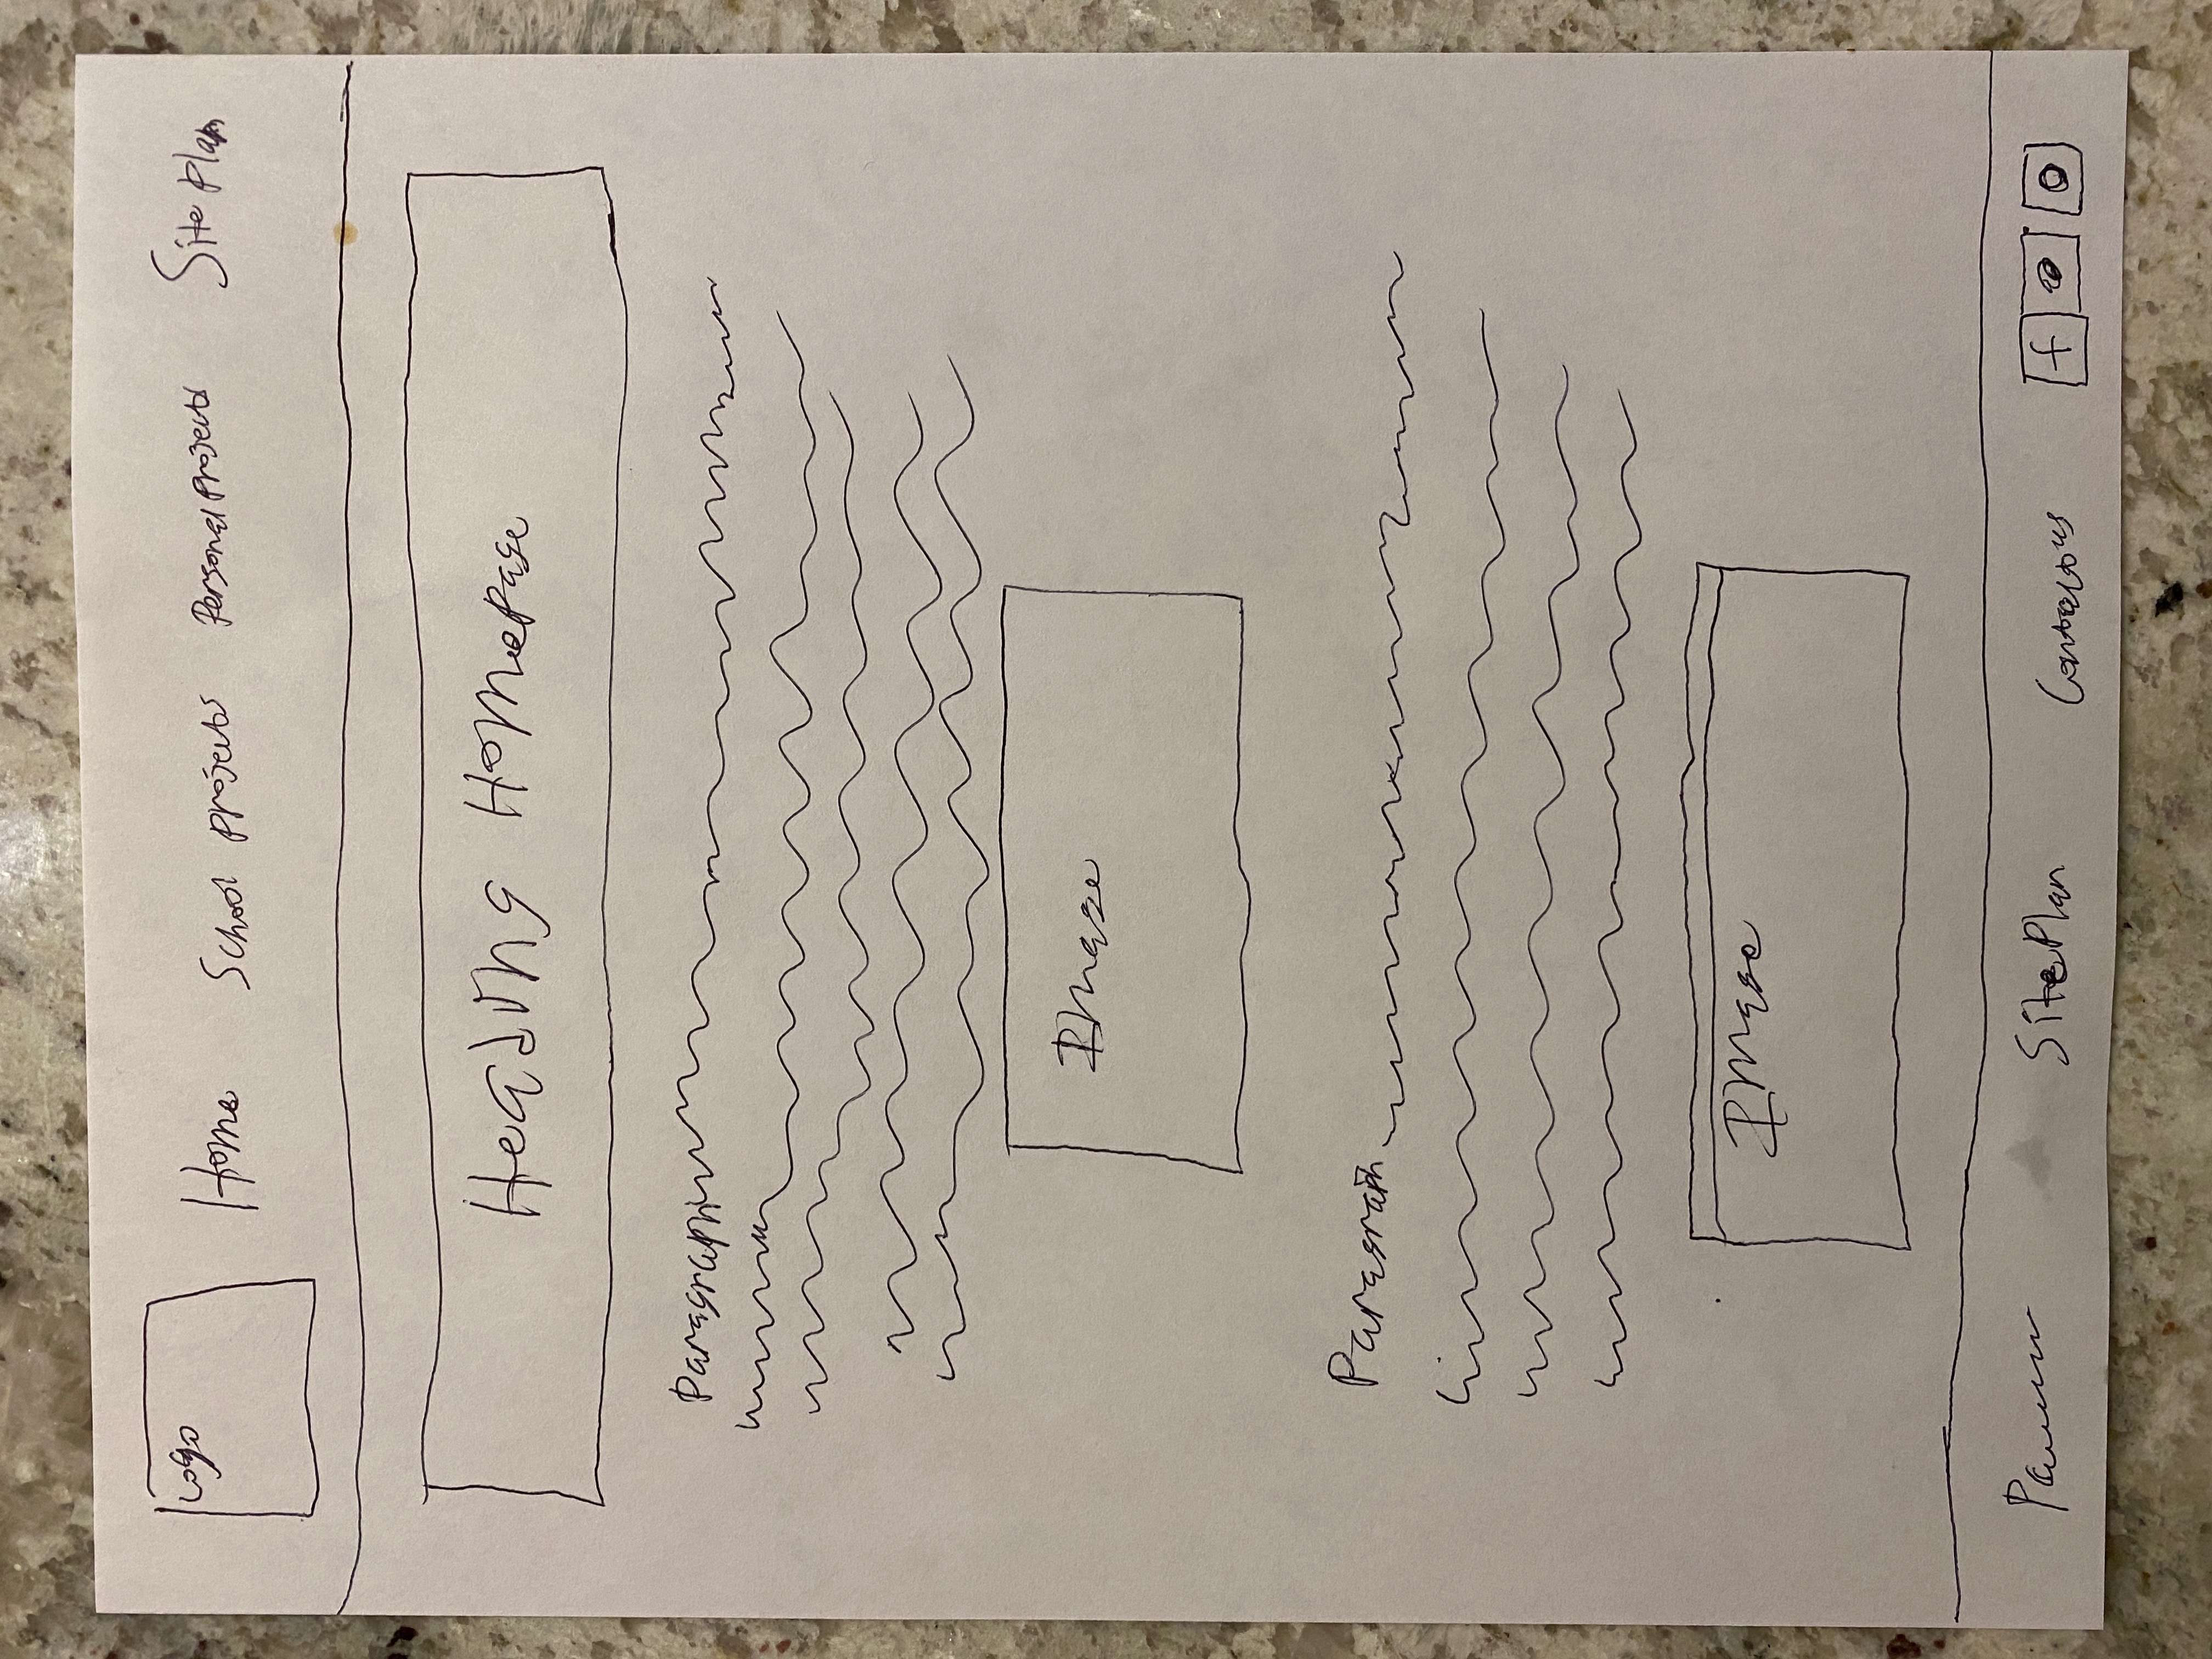 Logo
Home School projects Personal projects Site plan
Heading Homepage
Paragraph
Image
Paragraph
Image
Site Plan Contact us f